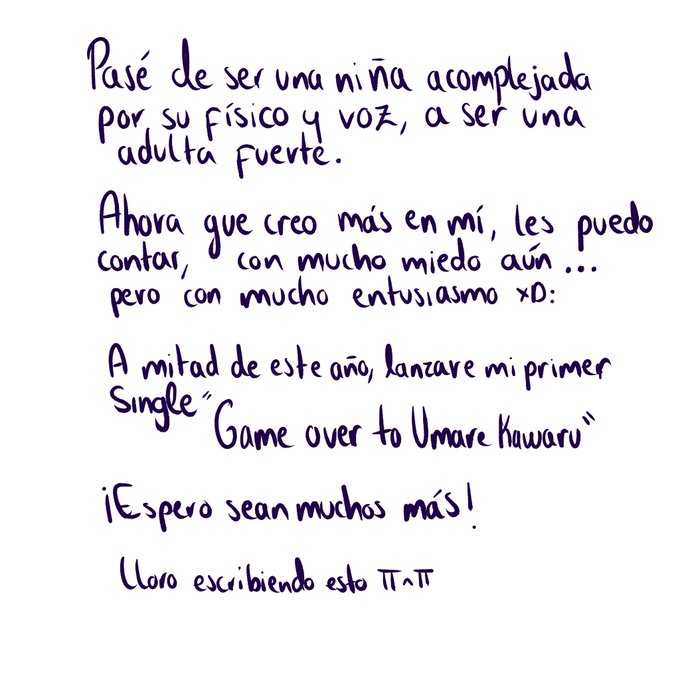 Pasé de ser una niña acomplejada
por su físico y voz, a ser una
adulta fuerte.
Ahora que creo más en mí, les puedo
contar, con mucho miedo aún...
pero con mucho entusiasmo xD:
A mitad de este año, lanzare mi primer
Single "
Game over to Umare Kawaru"
¡Espero sean muchos más!
Lloro escribiendo esto π^π